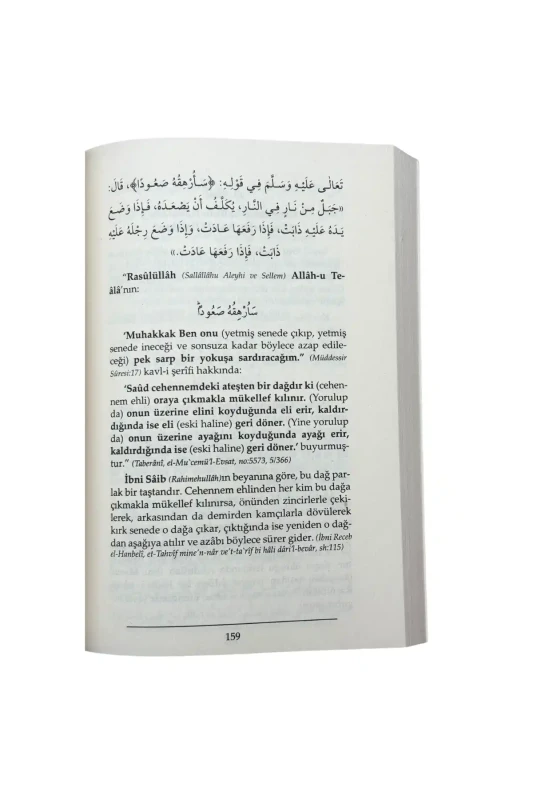 تَعَالٰى عَلَيْهِ وَسَلَّمَ فِي قَوْلِهِ: ﴿سَأُرْهِقُهُ صَعُودًا﴾، قَالَ:
«جَبَلٌ مِنْ نَارٍ فِي النَّارِ، يُكَلَّفُ أَنْ يَصْعَدَهُ، فَإِذَا وَضَعَ
يَدَهُ عَلَيْهِ ذَابَتْ، فَإِذَا رَفَعَهَا عَادَتْ، وَإِذَا وَضَعَ رِجْلَهُ عَلَيْهِ
ذَابَتْ، فَإِذَا رَفَعَهَا عَادَتْ.»
"Rasûlüllâh (Sallâllâhu Aleyhi ve Sellem) Allâh-u Te-
âlâ'nın:
سَأُرْهِقُهُ صَعُودًاۜ
'Muhakkak Ben onu (yetmiş senede çıkıp, yetmiş
senede ineceği ve sonsuza kadar böylece azap edile-
ceği) pek sarp bir yokuşa sardıracağım." (Müddessir
Sûresi:17) kavl-i şerîfi hakkında:
'Saûd cehennemdeki ateşten bir dağdır ki (cehen-
nem ehli) oraya çıkmakla mükellef kılınır. (Yorulup
da) onun üzerine elini koyduğunda eli erir, kaldır-
dığında ise eli (eski haline) geri döner. (Yine yorulup
da) onun üzerine ayağını koyduğunda ayağı erir,
kaldırdığında ise (eski haline) geri döner.' buyurmuş-
tur." (Taberânî, el-Mu'cemü'l-Evsat, no:5573, 5/366)
İbni Sâib (Rahimehullâh)ın beyanına göre, bu dağ par-
lak bir taştandır. Cehennem ehlinden her kim bu dağa
çıkmakla mükellef kılınırsa, önünden zincirlerle çeki-
lerek, arkasından da demirden kamçılarla dövülerek
kırk senede o dağa çıkar, çıktığında ise yeniden o dağ-
dan aşağıya atılır ve azâbı böylece sürer gider. (İbni Receb
el-Hanbelî, et-Tahvîf mine'n-nâr ve't-ta'rîf bi hâli dâri'l-bevâr, sh:115)
159